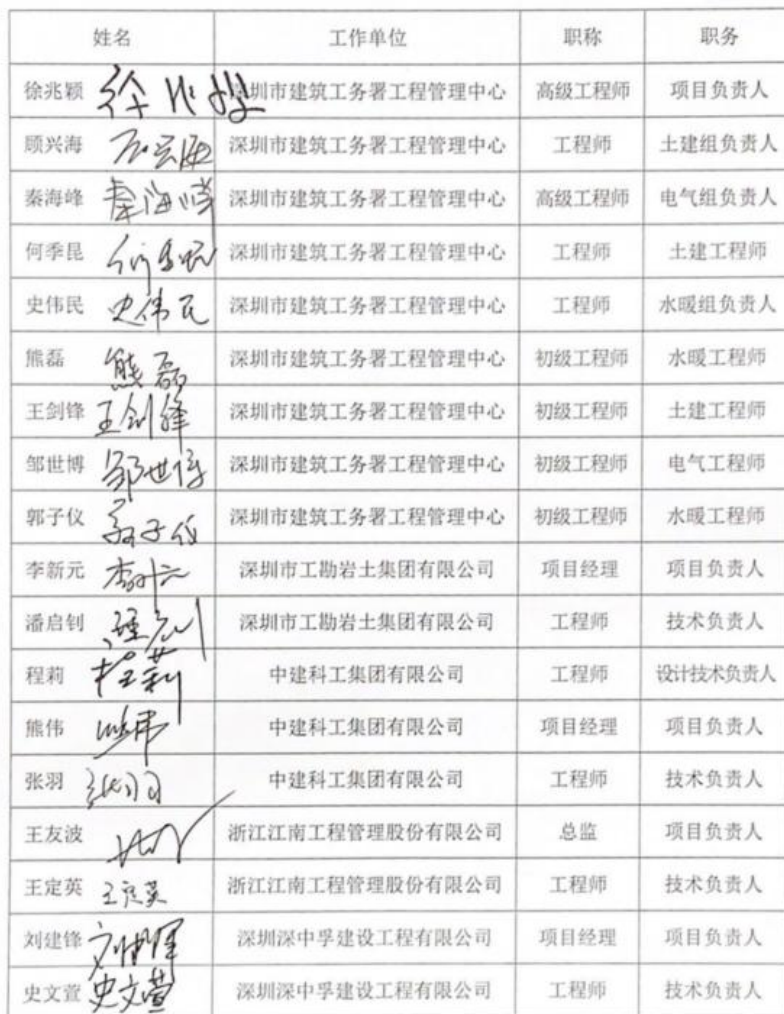 姓名 工作单位 职称 职务
徐兆颖 徐兆颖 深圳市建筑工务署工程管理中心 高级工程师 项目负责人
顾兴海 顾兴海 深圳市建筑工务署工程管理中心 工程师 土建组负责人
秦海峰 秦海峰 深圳市建筑工务署工程管理中心 高级工程师 电气组负责人
何季昆 何季昆 深圳市建筑工务署工程管理中心 工程师 土建工程师
史伟民 史伟民 深圳市建筑工务署工程管理中心 工程师 水暖组负责人
熊磊 熊磊 深圳市建筑工务署工程管理中心 初级工程师 水暖工程师
王剑锋 王剑锋 深圳市建筑工务署工程管理中心 初级工程师 土建工程师
邹世博 邹世博 深圳市建筑工务署工程管理中心 初级工程师 电气工程师
郭子仪 郭子仪 深圳市建筑工务署工程管理中心 初级工程师 水暖工程师
李新元 深圳市工勘岩土集团有限公司 项目经理 项目负责人
潘启钊 深圳市工勘岩土集团有限公司 工程师 技术负责人
程莉 程莉 中建科工集团有限公司 工程师 设计技术负责人
熊伟 中建科工集团有限公司 项目经理 项目负责人
张羽 张羽 中建科工集团有限公司 工程师 技术负责人
王友波 浙江江南工程管理股份有限公司 总监 项目负责人
王定英 王定英 浙江江南工程管理股份有限公司 工程师 技术负责人
刘建锋 深圳深中孚建设工程有限公司 项目经理 项目负责人
史文萱 史文萱 深圳深中孚建设工程有限公司 工程师 技术负责人